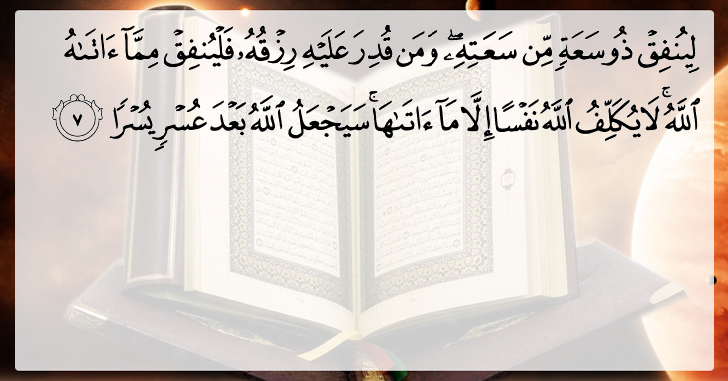 لِيُنفِقْ ذُو سَعَةٍ مِّن سَعَتِهِۦ ۖ وَمَن قُدِرَ عَلَيْهِ رِزْقُهُۥ فَلْيُنفِقْ مِمَّآ ءَاتَىٰهُ
ٱللَّهُ ۚ لَا يُكَلِّفُ ٱللَّهُ نَفْسًا إِلَّا مَآ ءَاتَىٰهَا ۚ سَيَجْعَلُ ٱللَّهُ بَعْدَ عُسْرٍ يُسْرًا ٧